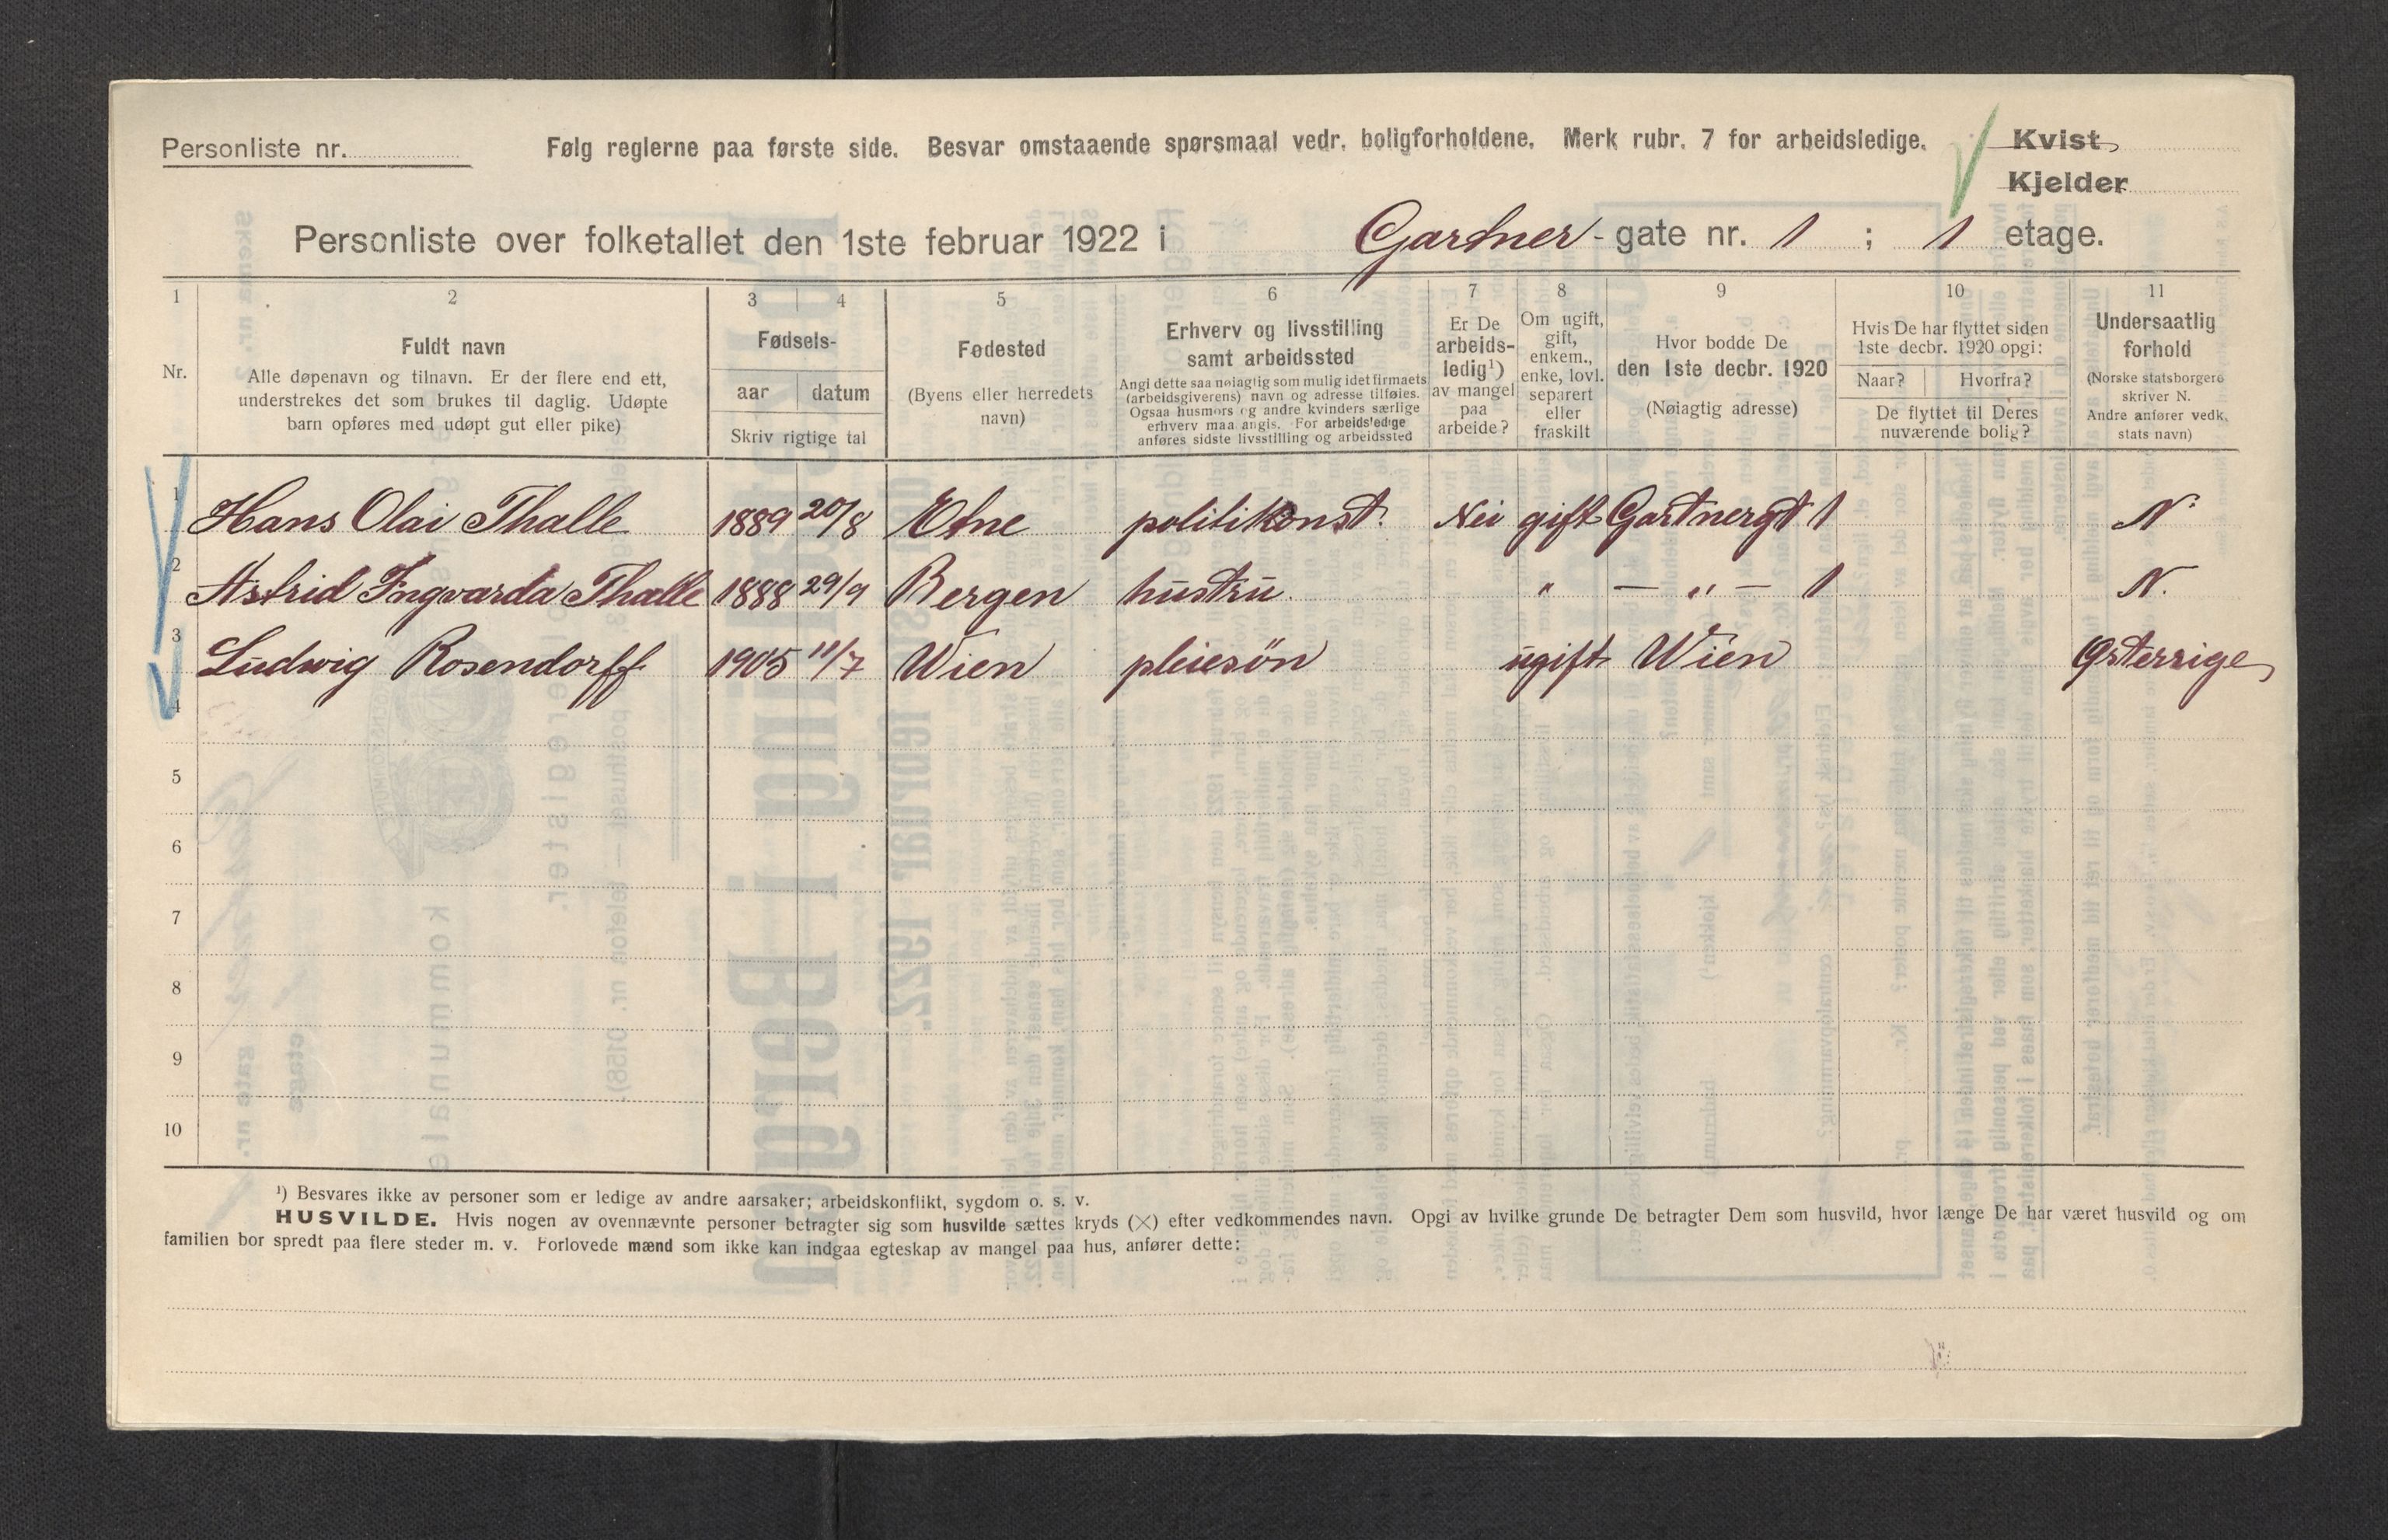 Personliste nr.
Følg reglerne paa første side. Besvar omstaaende spørsmaal vedr. boligforholdene. Merk rubr. 7 for arbeidsledige.
Kvist
Kjelder
Personliste over folketallet den 1ste februar 1922 i Gartner-gate nr. 1 ; 1 etage.
1 2 3 4 5 6 7 8 9 10 11
Nr.
Fuldt navn
Alle døpenavn og tilnavn. Er der flere end ett,
understrekes det som brukes til daglig. Udøpte
barn opføres med udøpt gut eller pike)
Fødsels-
aar datum
Skriv rigtige tal
Fødested
(Byens eller herredets
navn)
Erhverv og livsstilling
samt arbeidssted
Angi dette saa nøiagtig som mulig idet firmaets
(arbeidsgiverens) navn og adresse tilføies.
Ogsaa husmors og andre kvinders særlige
erhverv maa angis. For arbeidsledige
anføres sidste livsstilling og arbeidssted
Er De
arbeids-
ledig¹)
av mangel
paa
arbeide?
Om ugift,
gift,
enkem.,
enke, lovl.
separert
eller
fraskilt
Hvor bodde De
den 1ste decbr. 1920
(Nøiagtig adresse)
Hvis De har flyttet siden
1ste decbr. 1920 opgi:
Naar? Hvorfra?
De flyttet til Deres
nuværende bolig?
Undersaatlig
forhold
(Norske statsborgere
skriver N.
Andre anfører vedk.
stats navn)
1 Hans Olai Thalle 1889 20/8 Etne politikonst. Nei gift Gartnergt 1 N.
2 Astrid Ingvarda Thalle 1888 29/9 Bergen hustru. " — " — 1 N.
3 Ludwig Rosendorff 1905 11/7 Wien pleiesön ugift Wien Østerrige
4
5
6
7
8
9
10
¹) Besvares ikke av personer som er ledige av andre aarsaker; arbeidskonflikt, sygdom o. s. v.
HUSVILDE. Hvis nogen av ovennævnte personer betragter sig som husvilde sættes kryds (×) efter vedkommendes navn. Opgi av hvilke grunde De betragter Dem som husvild, hvor længe De har været husvild og om
familien bor spredt paa flere steder m. v. Forlovede mænd som ikke kan indgaa egteskap av mangel paa hus, anfører dette: